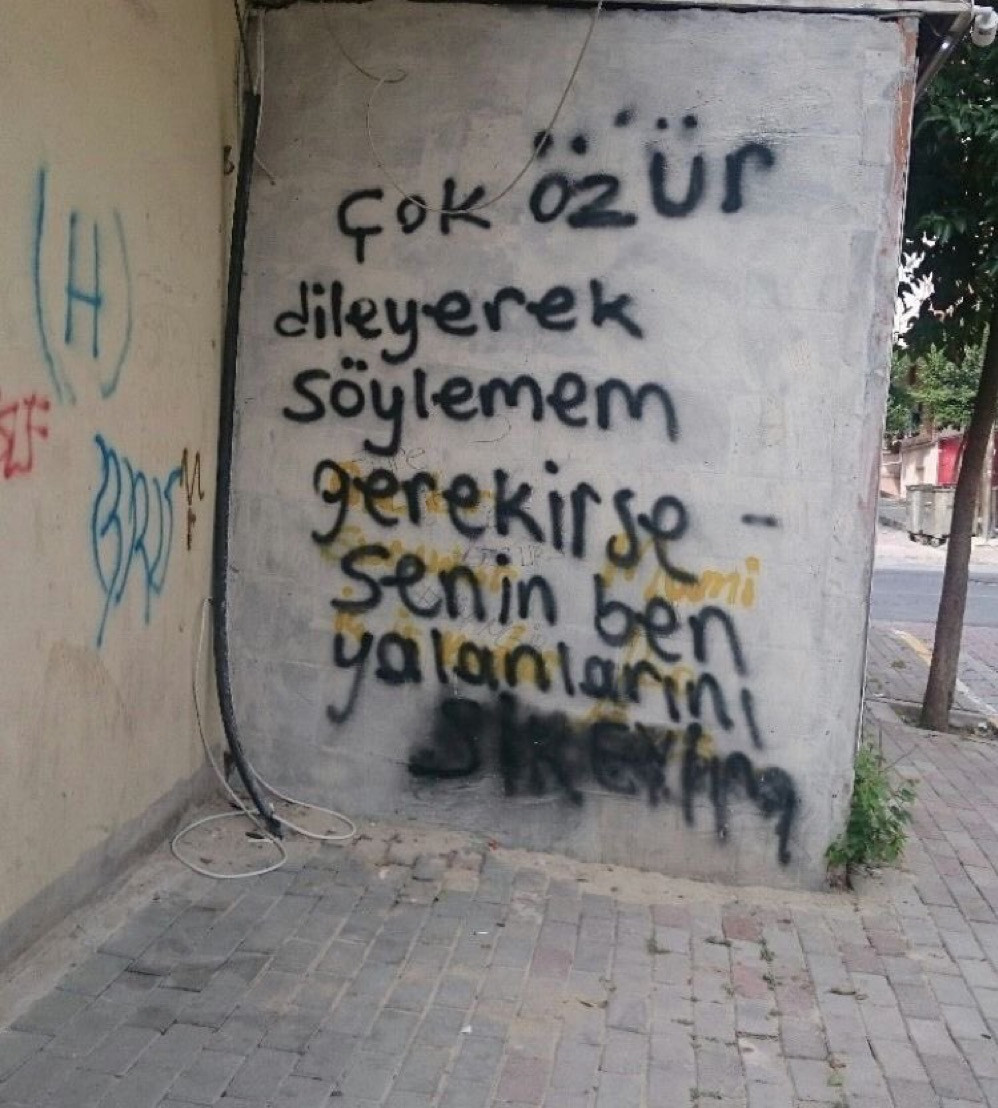 çok özür
dileyerek
söylemem
gerekirse -
senin ben
yalanlarını
SİKEYİM
(H)